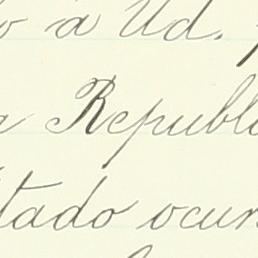 o á Ud.
a Republi
tado ocur